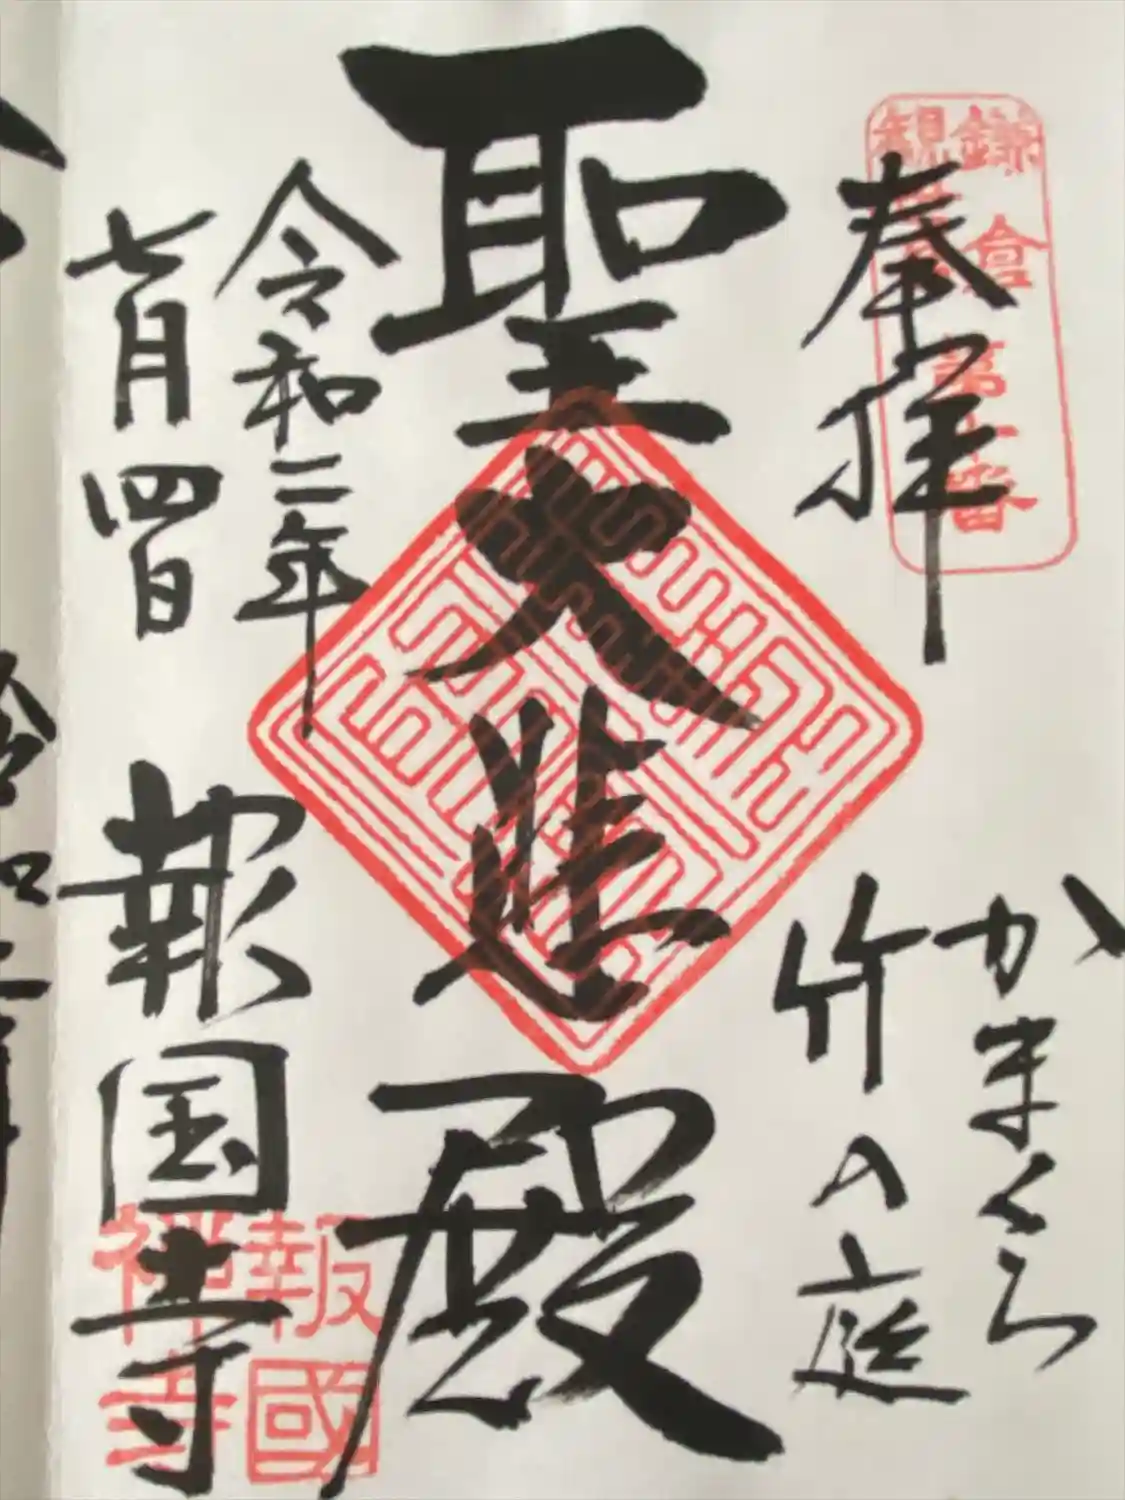 奉拝
鎌倉
第十番
かまくら
竹の庭
聖大悲殿
令和二年
七月四日
報国寺
報國
禅寺